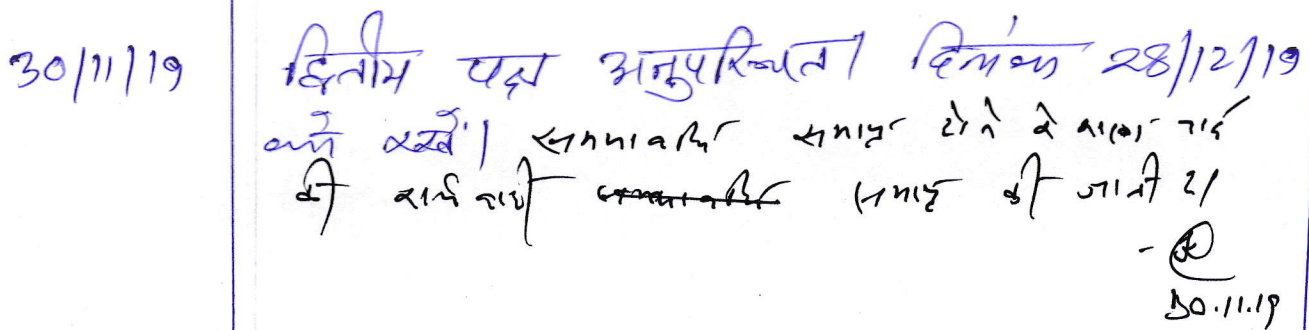 30/11/19 द्वितीय पक्ष अनुपस्थित। दिनांक 28/12/19
को रखें। समयावधि समाप्त होने के कारण वाद
की कार्यवाही समयावधि समाप्त की जाती है।
30.11.19